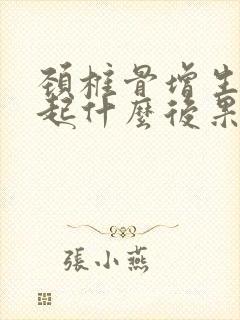 頸椎骨增生
起什麼後果
張小燕